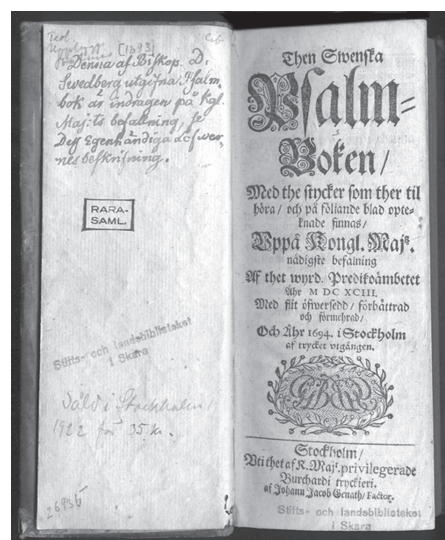 Teol.
[1693]
Denna af Biskop. D.
Swedberg utgifna Psalm
bok är indragen på Kgl.
Maj:ts befallning, se
Dess Egenhändiga Lefwer-
nes beskrifning.
RARA-
SAML.
Stifts- och landsbiblioteket
i Skara
Såld i Stockholm
1922 för 35 kr.
Then Swenska
Psalm-
Boken/
Med the stycker som ther til
höra/ och på följande blad opte-
knade finnas/
Uppå Kongl. Majtz.
nådigste befalning
Af thet wyrd. Predikoämbetet
Åhr M DC XCIII.
Med flit öfwersedd/ förbättrad
och förmehrad/
Och Åhr 1694. i Stockholm
af trycket utgången.
Stockholm/
Uti thet af K. Majt. privilegerade
Burchardi tryckeri.
af Johann Jacob Genath/ Factor.
Stifts- och landsbiblioteket
i Skara